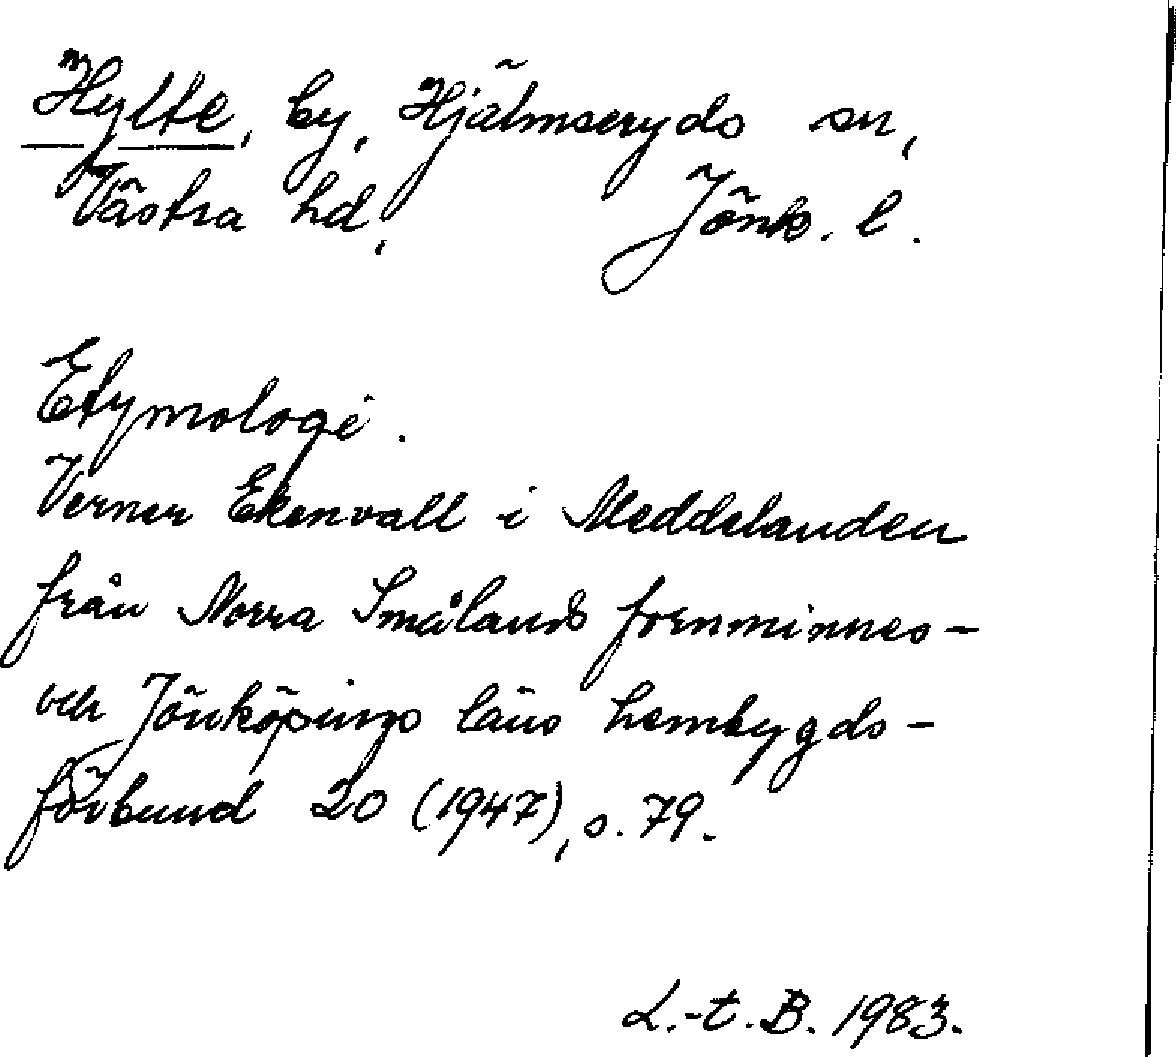 Hylte, by, Hjälmseryds sn,
Västra hd, Jönk. l.
Etymologi.
Verner Ekenvall i Meddelanden
från Norra Smålands fornminnes-
och Jönköpings läns hembygds-
förbund 20 (1947), s. 79.
L.-t. B. 1983.